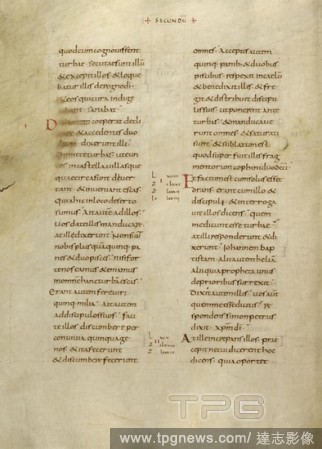 SECUNDŪ
quod cum cognovissent
turbae secutae sunt illū
& excepit illos & loque
batur illis de regno dī
& eos qui cura indige
bant sanabat
Dies autem coeperat decli
nare & accedentes duo
decim dixerunt illi
Dimitte turbas ut eun
tes in castella villasque
quae circa sunt devertant
& inveniant escas
quia hic in loco deserto
sumus Ait autem ad illos
vos date illis manducare
at illi dixerunt Non sunt
nobis plus quam quinq pa
nes & duo pisces nisi for
te nos eamus & emamus
in omnem hanc turbam escas
erant autem fere viri
quinq milia Ait autem
ad discipulos suos faci
te illos discumbere per
convivia quinquage
nos & ita fecerunt
& discumbere fecerunt
omnes Acceptis autem
quinq panib & duobus
piscibus respexit in caelū
& benedixit illis & fre
git & distribuit discipu
lis suis ut ponerent ante
turbas & manducave
runt omnes & saturati
sunt & sublatum est
quod superfuit illis frag
mentorum cophini duodecī
Et factum est cum solus esset
orans erant cum illo &
discipuli & interroga
vit illos dicens quem
me dicunt esse turbae
At illi responderunt & dix
erunt Iohannem bap
tistam alii autem heliam
alii quia propheta unus
de prioribus surrexit
Dixit autem illis vos autē
quem me esse dicitis res
pondens simon petrus
dixit xpm dī
At ille increpans illos prae
cepit ne cui dicerent hoc
dicens quia oportet
TPG
www.tpgnews.com/達志影像